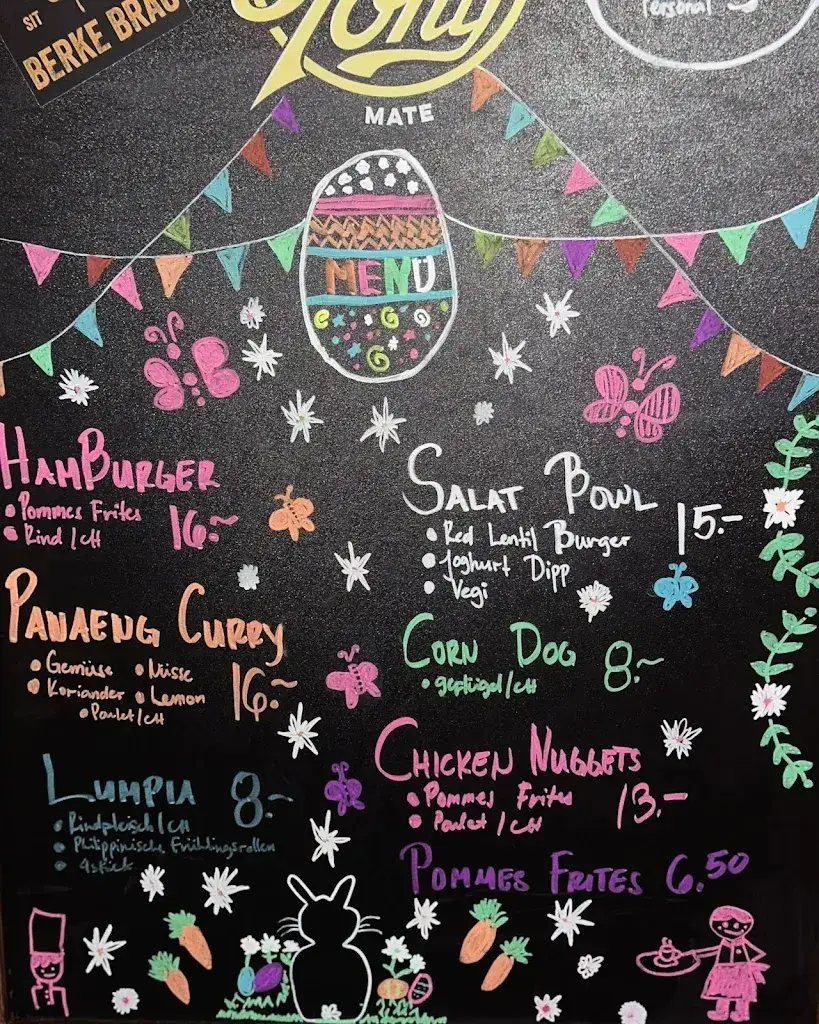 SIT
BERKE BRÄU
Tony
MATE
Personal
MENÜ
HAMBURGER
• Pommes Frites
• Rind / CH
16.-
PANAENG CURRY
• Gemüse • Nüsse
• Koriander • Lemon
• Poulet / CH
16.-
LUMPIA 8.-
• Rindfleisch / CH
• Philippinische Frühlingsrollen
• 4 stück
SALAT BOWL
• Red Lentil Burger
• Joghurt Dipp
• Vegi
15.-
CORN DOG
• geflügel / CH
8.-
CHICKEN NUGGETS
• Pommes Frites
• Poulet / CH
13.-
POMMES FRITES 6.50